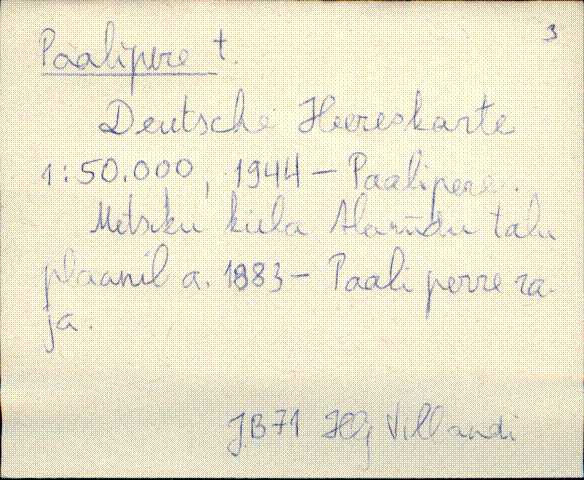 3
Paalipere t.
Deutsche Heereskarte
1:50.000, 1944 – Paalipere.
Metsku küla Alamüdu talu
plaanil a. 1883 – Paali perre ra-
ja.
JB71 Viljandi